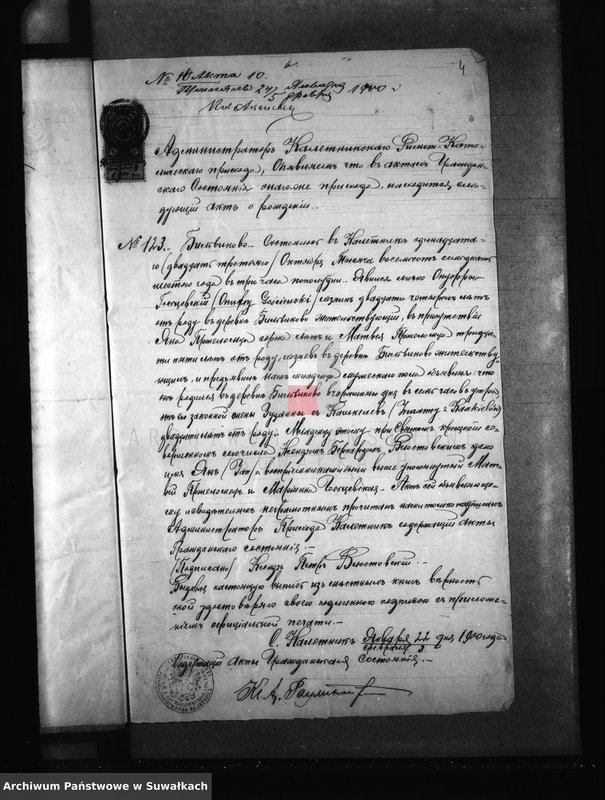 4
№ 10 Акта 10.
24 Января
5 Февр. 1900 г.
Администраторъ Калетникскаго Римско-Като-
лическаго прихода, Объявляетъ что въ актахъ Граждан-
скаго Состоянія онаго же прихода, находится слѣ-
дующій актъ о рожденіи..
№ 123.- Бильвиново. Состоялось въ Калетникѣ одинадцата-
го (двадцать третьяго) Октября тысяча восемьсотъ семьдесятъ
шестого года въ три часа пополудни. Явился лично Онуфрій
Госцевскій (Onufry Gościewski) двадцати четырехъ лѣтъ
отъ роду въ деревнѣ Бильвиново жительствующій, въ присутствіи
Яна сорока лѣтъ и Матвея тридца-
ти пяти лѣтъ отъ роду, въ деревнѣ Бильвиново жительству-
ющихъ, и предъявилъ намъ младенца мужескаго пола объявляя что
онъ родился въ деревнѣ Бильвиново вчерашняго дня въ семь часовъ утра
отъ его законной жены Зузанны съ
двадцати лѣтъ отъ роду. Младенцу этому при Святомъ крещеніи со-
вершенномъ сего числа Ксендзомъ Бернардомъ дано
имя Янъ (Jan) а воспріемниками были выше упомянутый Мат-
вей и Маріанна Госцевская. Актъ сей объявляюще-
му и свидѣтелямъ неграмотнымъ прочитанъ нами только подписанъ
Администраторъ Прихода Калетникъ содержащій акты
Гражданскаго состоянія.-
(Подписано) Ксендзъ Петръ
Выдавая настоящую выпись изъ книгъ вѣрность
оной удостовѣряю своею подлинною подписью съ приложе-
ніемъ оффиціальной печати.-
С. Калетникъ Января 22 дня 1900 года
Февраля 3
Содержащій акты Гражданскаго Состоянія.-
Archiwum Państwowe w Suwałkach